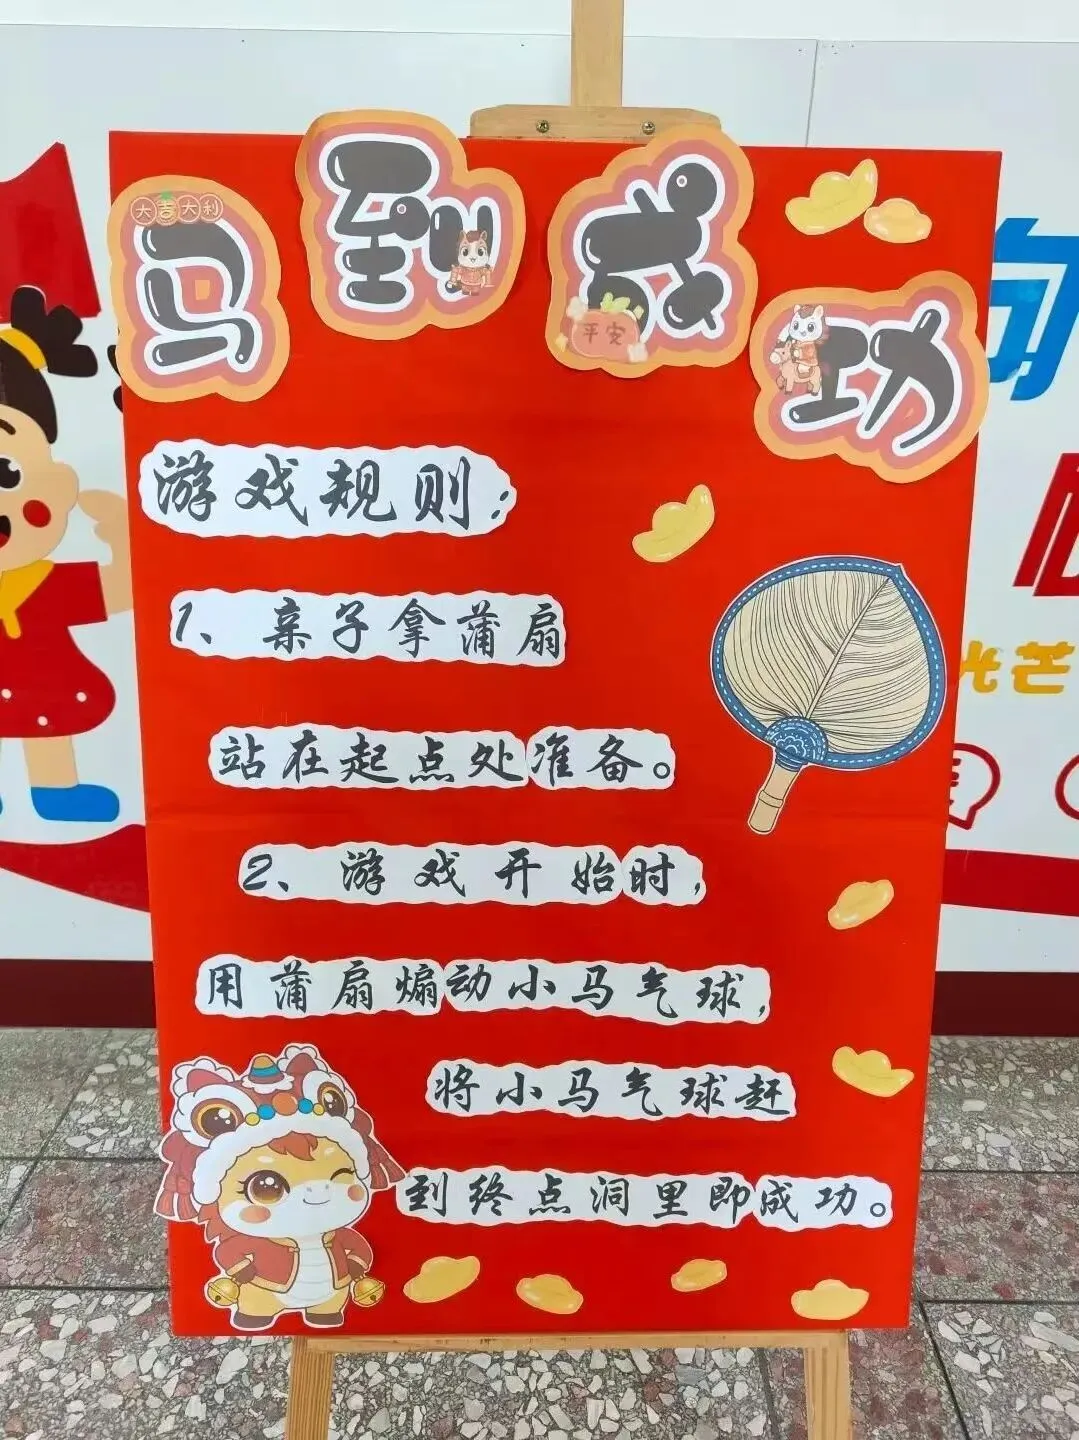 马到成功
大吉大利
平安
游戏规则：
1、亲子拿蒲扇
站在起点处准备。
2、游戏开始时，
用蒲扇煽动小马气球，
将小马气球赶
到终点洞里即成功。
光芒